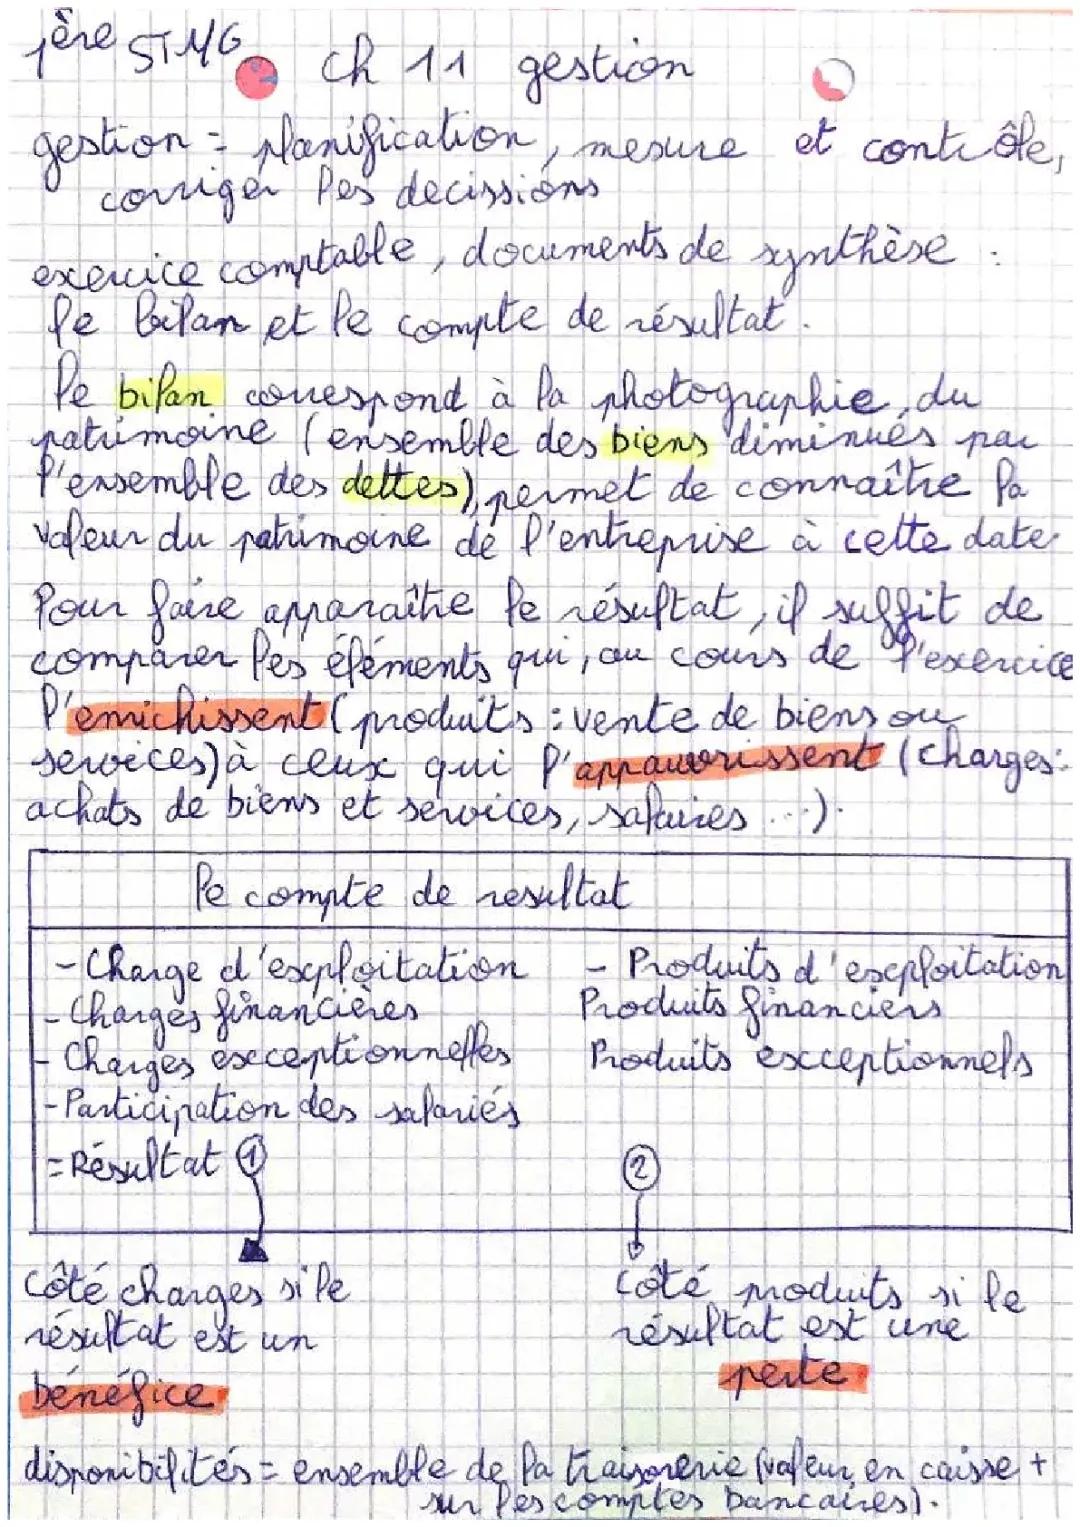 1ère STMG
Ch 11 gestion
gestion = planification, mesure et contrôle,
corriger les decissions
exercice comptable, documents de synthèse :
le bilan et le compte de résultat.
le bilan correspond à la photographie du
patrimoine (ensemble des biens diminués par
l'ensemble des dettes), permet de connaître la
valeur du patrimoine de l'entreprise à cette date.
Pour faire apparaître le résultat, il suffit de
comparer les éléments qui, au cours de l'exercice
l'enrichissent (produits : vente de biens ou
services) à ceux qui l'appauvrissent (charges :
achats de biens et services, salaires ...).
le compte de resultat
- Charge d'exploitation - Produits d'exploitation
- Charges financières Produits financiers
- Charges exceptionnelles Produits exceptionnels
- Participation des salariés
= Résultat 1 2
Côté charges si le Côté produits si le
résultat est un résultat est une
bénéfice perte
disponibilités = ensemble de la traisorerie (valeur en caisse +
sur les comptes bancaires).